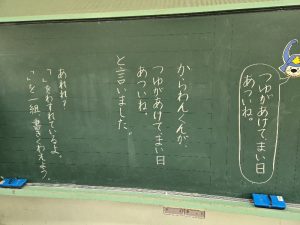 つゆがあけてまい日
あついね。
からわんくんが、
つゆがあけてまい日
あついね。
と言いました。
あれれ？
「」をわすれているよ。
「」を一組書きくわえよう。